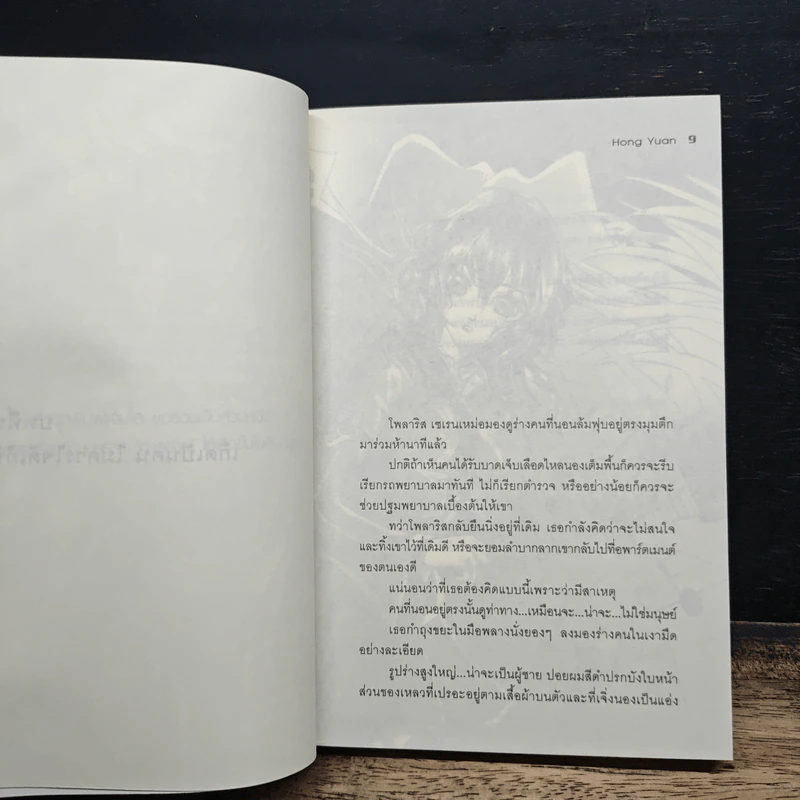 Hong Yuan 9
โพลาริส เซเรนเหม่อมองดูร่างคนที่นอนล้มฟุบอยู่ตรงมุมตึก
มาร่วมห้านาทีแล้ว
ปกติถ้าเห็นคนได้รับบาดเจ็บเลือดไหลนองเต็มพื้นก็ควรจะรีบ
เรียกรถพยาบาลมาทันที ไม่ก็เรียกตำรวจ หรืออย่างน้อยก็ควรจะ
ช่วยปฐมพยาบาลเบื้องต้นให้เขา
ทว่าโพลาริสกลับยืนนิ่งอยู่ที่เดิม เธอกำลังคิดว่าจะไม่สนใจ
และทิ้งเขาไว้ที่เดิมดี หรือจะยอมลำบากลากเขากลับไปที่อพาร์ตเมนต์
ของตนเองดี
แน่นอนว่าที่เธอต้องคิดแบบนี้เพราะว่ามีสาเหตุ
คนที่นอนอยู่ตรงนั้นดูท่าทาง...เหมือนจะ...น่าจะ...ไม่ใช่มนุษย์
เธอกำถุงขยะในมือพลางนั่งยองๆ ลงมองร่างคนในเงามืด
อย่างละเอียด
รูปร่างสูงใหญ่...น่าจะเป็นผู้ชาย ปอยผมสีดำปรกบังใบหน้า
ส่วนของเหลวที่เปรอะอยู่ตามเสื้อผ้าบนตัวและที่เจิ่งนองเป็นแอ่ง